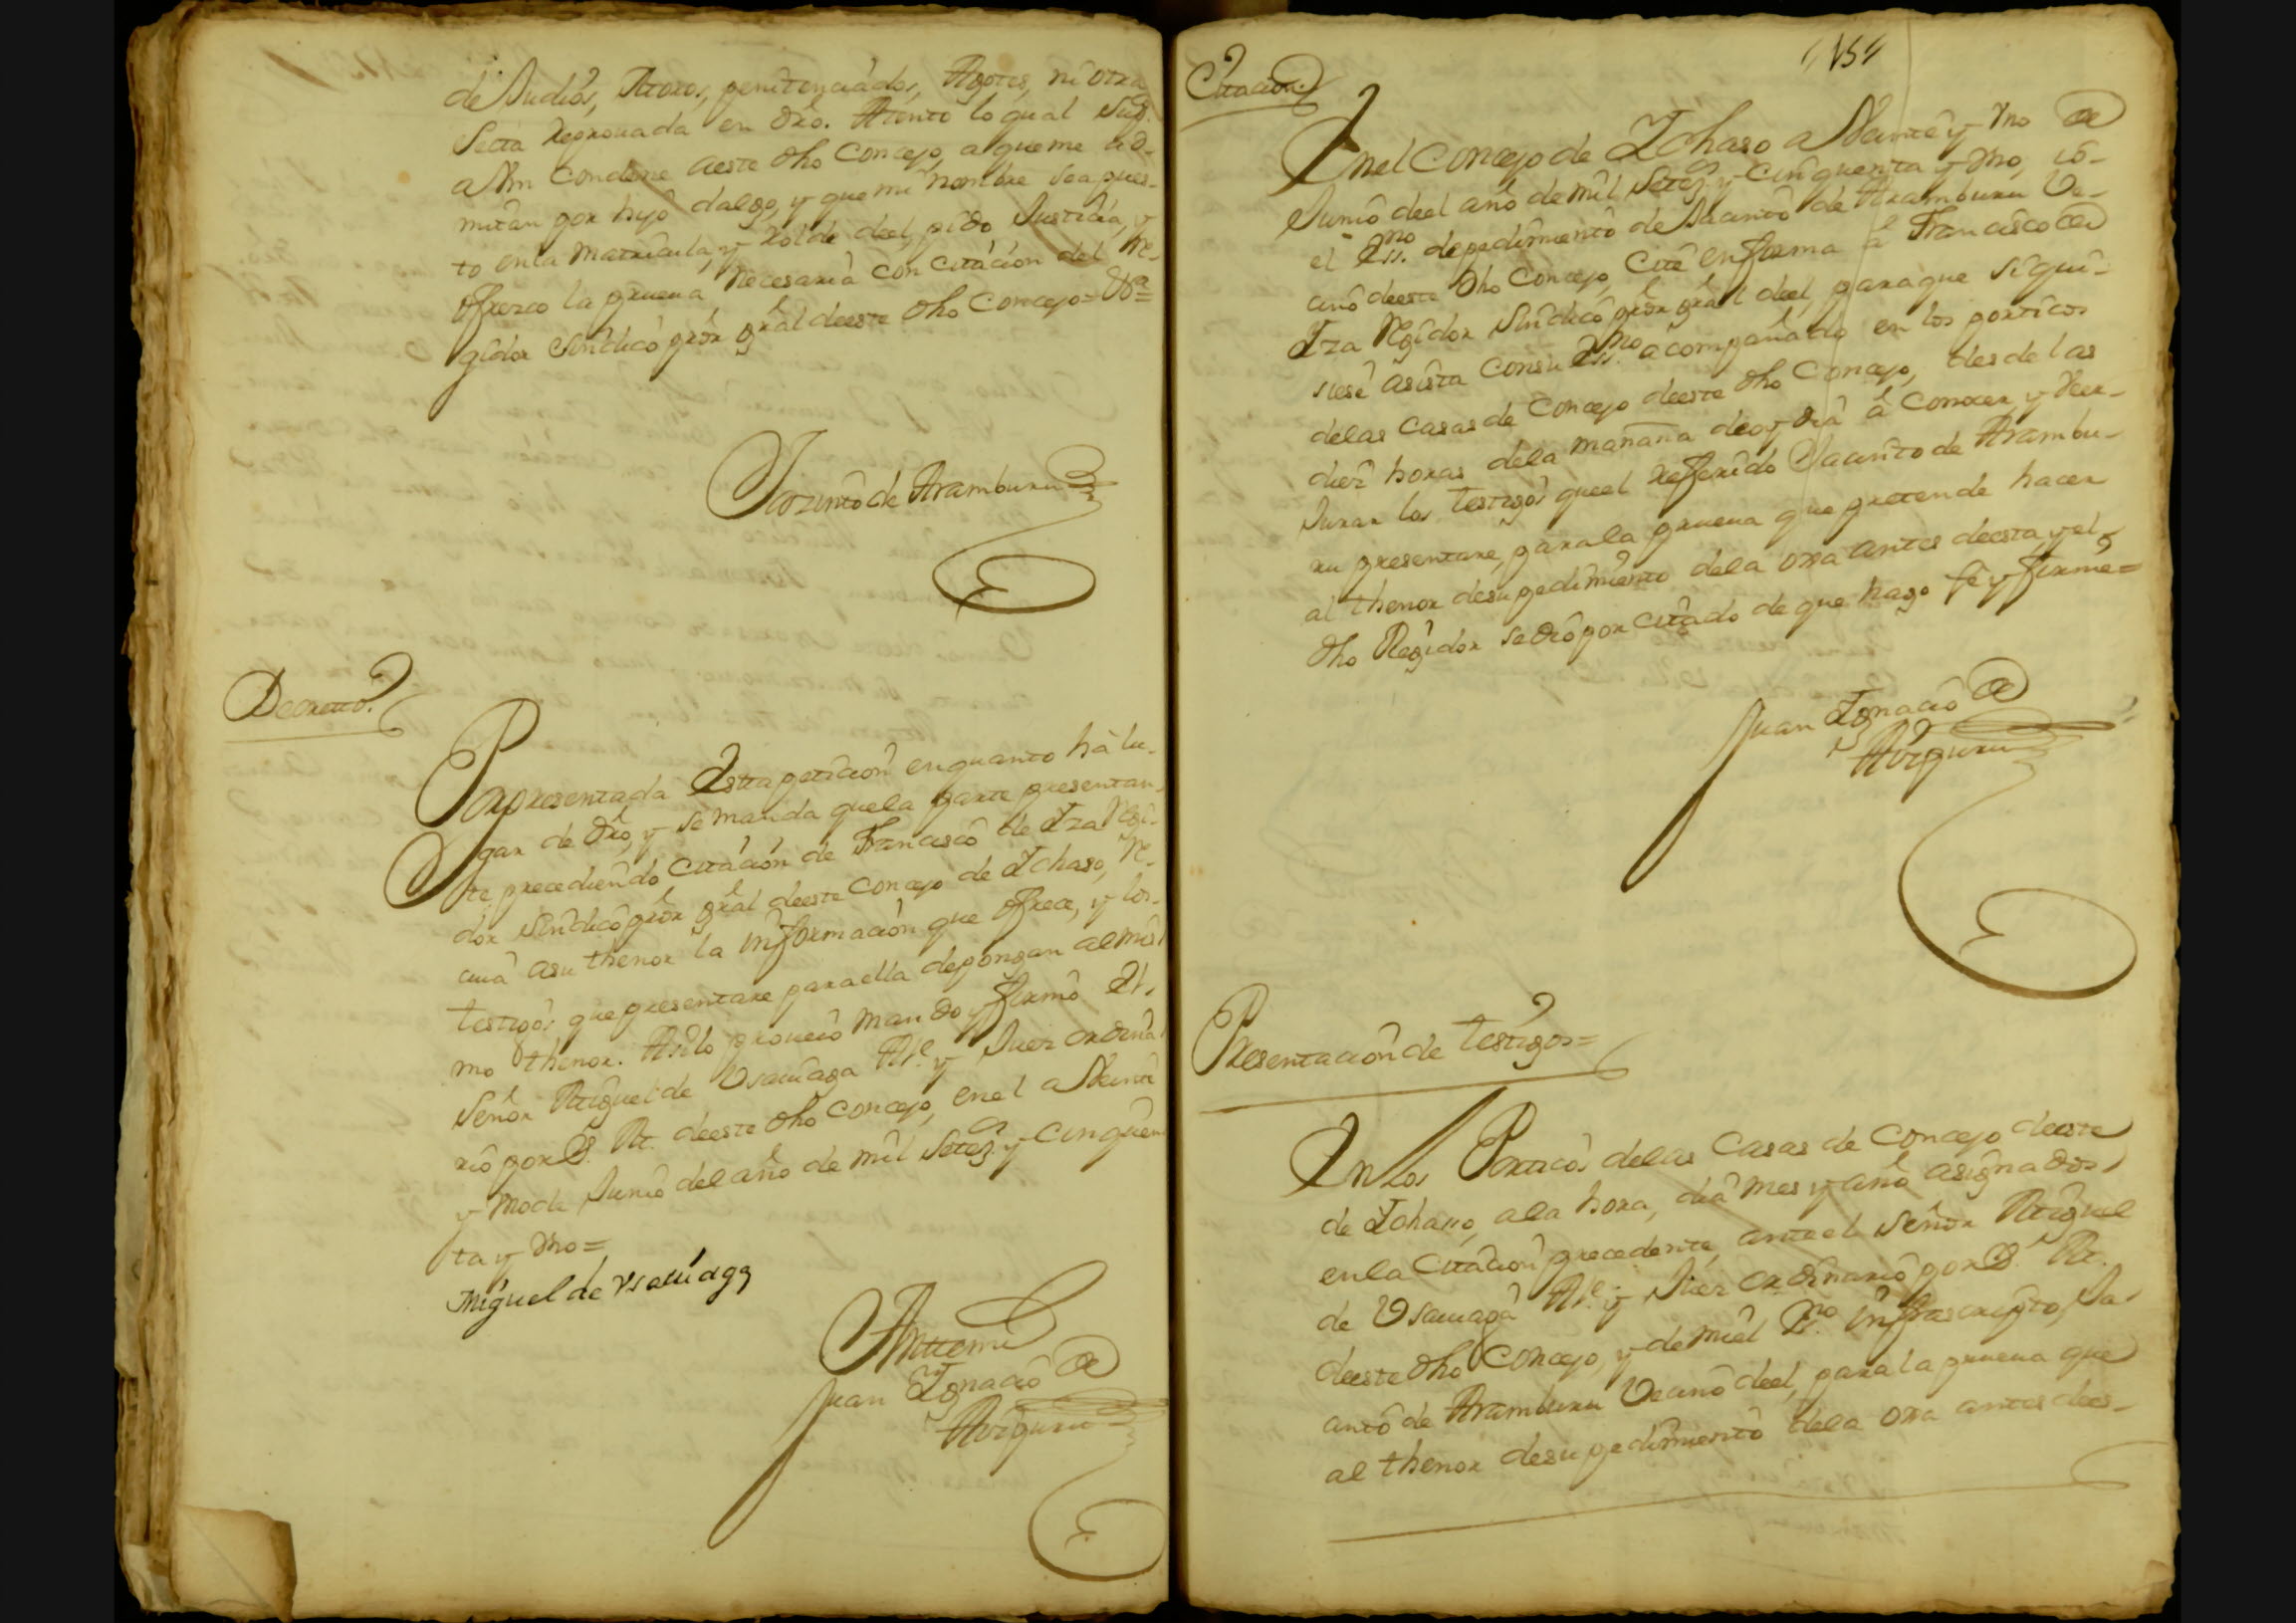 de Judios, Moros, penitenciados, Agotes, ni otra
Secta reprouada en dro. Atento lo qual Supp.
a Vm condene a este dho Concejo, a que me ad-
mitan por hijo dalgo, y que mi nombre sea pues-
to en la matricula, y rolde deel, pido Justicia, y
ofrezco la prueua necesaria con citación del Re-
gidor Sindico pror gral deeste dho Concejo=
Jazinto de Aramburu
Decretto.
Por presentada Esta peticion en quanto ha lu-
gar de dro, y se manda que la parte presentan-
te precediendo Citación de Francisco de Iza Regi-
dor Sindico pror gral deeste Concejo de Ichaso, re-
ciua asu thenor la informacion que ofrece, y los
testigos que presentare para ella depongan al mis
mo thenor. Asilo proueió mandó y firmó El
Señor Miguel de Vsauiaga Alc.e y Juez ordina
rio por S. M. deeste dho Concejo, en el a Veinte
y Vno de Junio del año de mil Setez.s y Cinquen
ta y Vno=
Miguel de Vsauiaga
Antemi
Juan Ignacio de
Aizpuru
154
Citacion.
En el Concejo de Ichaso a Veinte y Vno de
Junio deel año de mil Setez.s y Cinquenta y Vno, io
el Ess.no de pedimiento de Jacinto de Aramburu Ve-
cino deeste dho Concejo, Cité en forma á Francisco de
Iza Regidor Sindico pror gral deel, para que si qui-
siese asista con su Ess.no acompañado en los porticos
delas Casas de Concejo deeste dho Concejo, desde las
diez horas dela mañana de oy dia á Conocer y Veer
Jurar los testigos que el referido Jacinto de Arambu-
ru presentare, para la prueua que pretende hacer
al thenor desu pedimiento dela ora antes deesta, y el
dho Regidor se dió por citado de que hago fe y firmé=
Juan Ignacio de
Aizpuru
Presentacion de testigos=
En Los Porticos delas Casas de Concejo deeste
de Ichasso, a la hora, dia mes y año asignados
en la Citacion precedente, ante el Señor Miguel
de Vsauiaga Alc.e y Juez ordinario por S. M.
deeste dho Concejo, y de mi el Ess.no infrascripto, Ja-
cinto de Aramburu Vecino deel, para la prueua que
al thenor desu pedimiento dela ora antes dees-